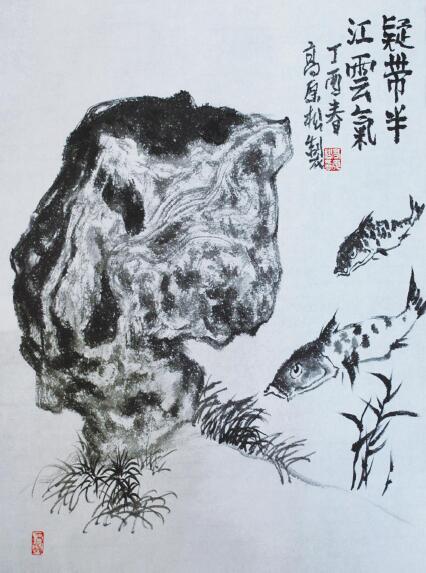 疑带半
江雲氣
丁酉春
高原松製